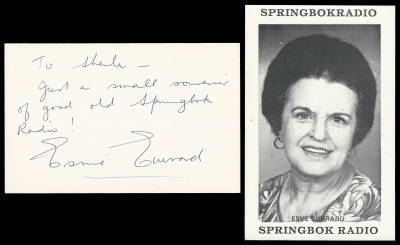 To Sheila –
Just a small souvenir
of good old Springbok
Radio!
Esmé Euvrard
SPRINGBOKRADIO
ESMÉ EUVRARD
SPRINGBOK RADIO